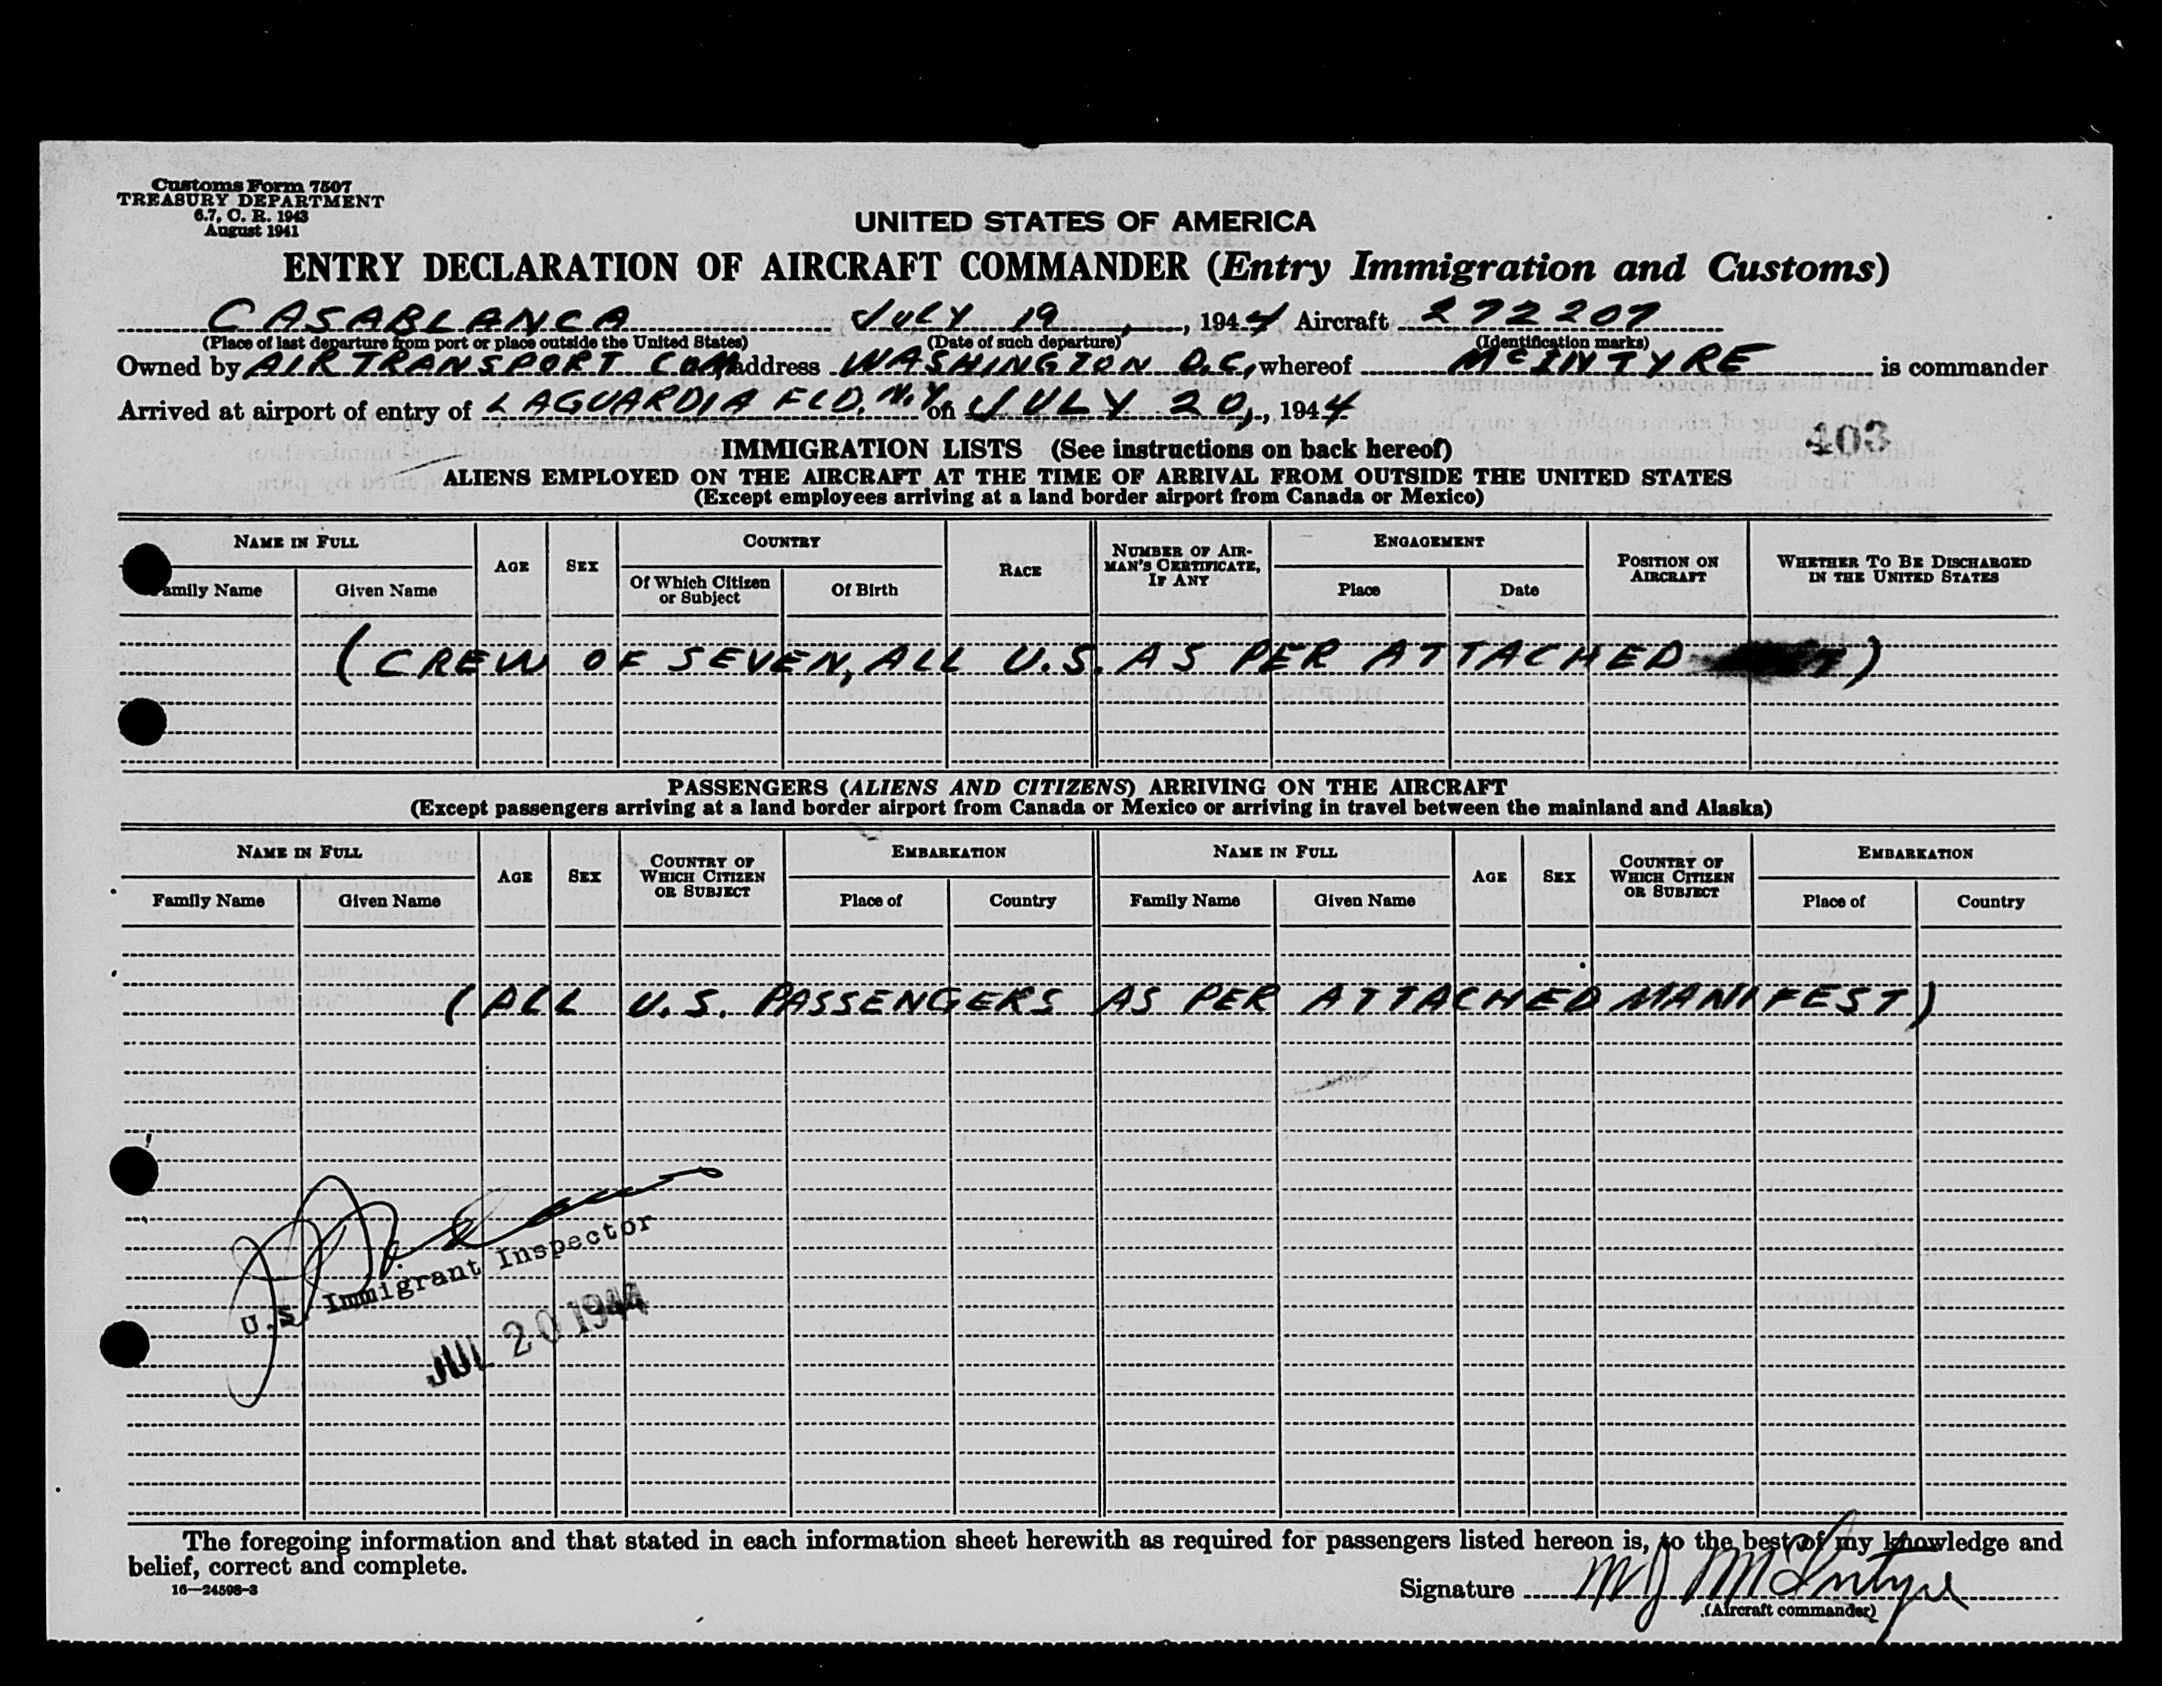 Customs Form 7507
TREASURY DEPARTMENT
6.7, C. R. 1943
August 1941
UNITED STATES OF AMERICA
ENTRY DECLARATION OF AIRCRAFT COMMANDER (Entry Immigration and Customs)
CASABLANCA JULY 19, 1944 Aircraft 272207
(Place of last departure from port or place outside the United States) (Date of such departure) (Identification marks)
Owned by AIR TRANSPORT COM, address WASHINGTON D.C., whereof McINTYRE is commander
Arrived at airport of entry of LAGUARDIA FLD. N.Y. on JULY 20, 1944
403
IMMIGRATION LISTS (See instructions on back hereof)
ALIENS EMPLOYED ON THE AIRCRAFT AT THE TIME OF ARRIVAL FROM OUTSIDE THE UNITED STATES
(Except employees arriving at a land border airport from Canada or Mexico)
NAME IN FULL AGE SEX COUNTRY RACE NUMBER OF AIRMAN'S CERTIFICATE, IF ANY ENGAGEMENT POSITION ON AIRCRAFT WHETHER TO BE DISCHARGED IN THE UNITED STATES
Family Name Given Name Of Which Citizen or Subject Of Birth Place Date
(CREW OF SEVEN, ALL U.S. AS PER ATTACHED )
PASSENGERS (ALIENS AND CITIZENS) ARRIVING ON THE AIRCRAFT
(Except passengers arriving at a land border airport from Canada or Mexico or arriving in travel between the mainland and Alaska)
NAME IN FULL AGE SEX COUNTRY OF WHICH CITIZEN OR SUBJECT EMBARKATION NAME IN FULL AGE SEX COUNTRY OF WHICH CITIZEN OR SUBJECT EMBARKATION
Family Name Given Name Place of Country Family Name Given Name Place of Country
(ALL U.S. PASSENGERS AS PER ATTACHED MANIFEST)
U.S. Immigrant Inspector
JUL 20 1944
The foregoing information and that stated in each information sheet herewith as required for passengers listed hereon is, to the best of my knowledge and
belief, correct and complete.
16—24598-3
Signature M J McIntyre
(Aircraft commander)